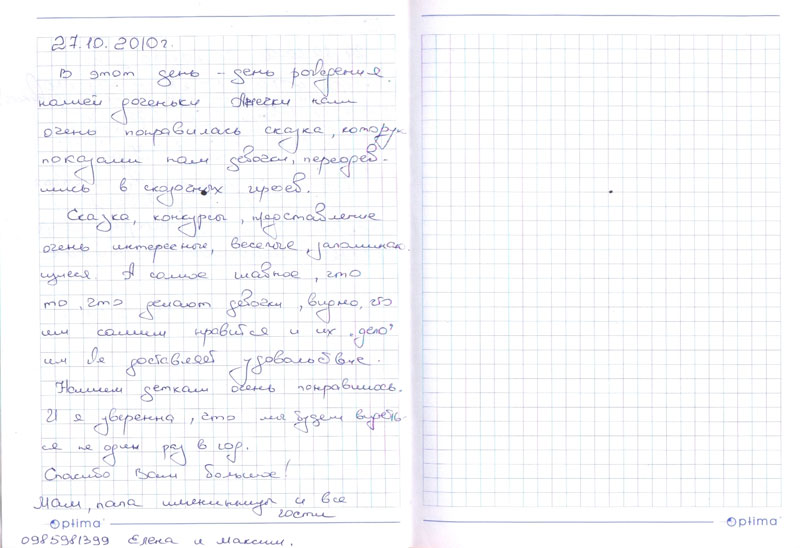 27.10.2010г.
В этот день - день рождения
нашей доченьки Анечки нам
очень понравилась сказка, котору
показали нам девочки, переодев-
шись в сказочных героев.
Сказка, конкурсы, представление
очень интересные, веселые, запоминаю
щиеся. А самое главное, что
то, что делают девочки, видно, что
им самим нравится и их "дело"
им доставляет удовольствие.
Нашим деткам очень понравилось.
И я уверенна, что мы будем видеть-
ся не один раз в год.
Спасибо Вам большое!
Мам, папа именинницы и все
гости
Optima
Optima
0985981399 Елена и Максим.